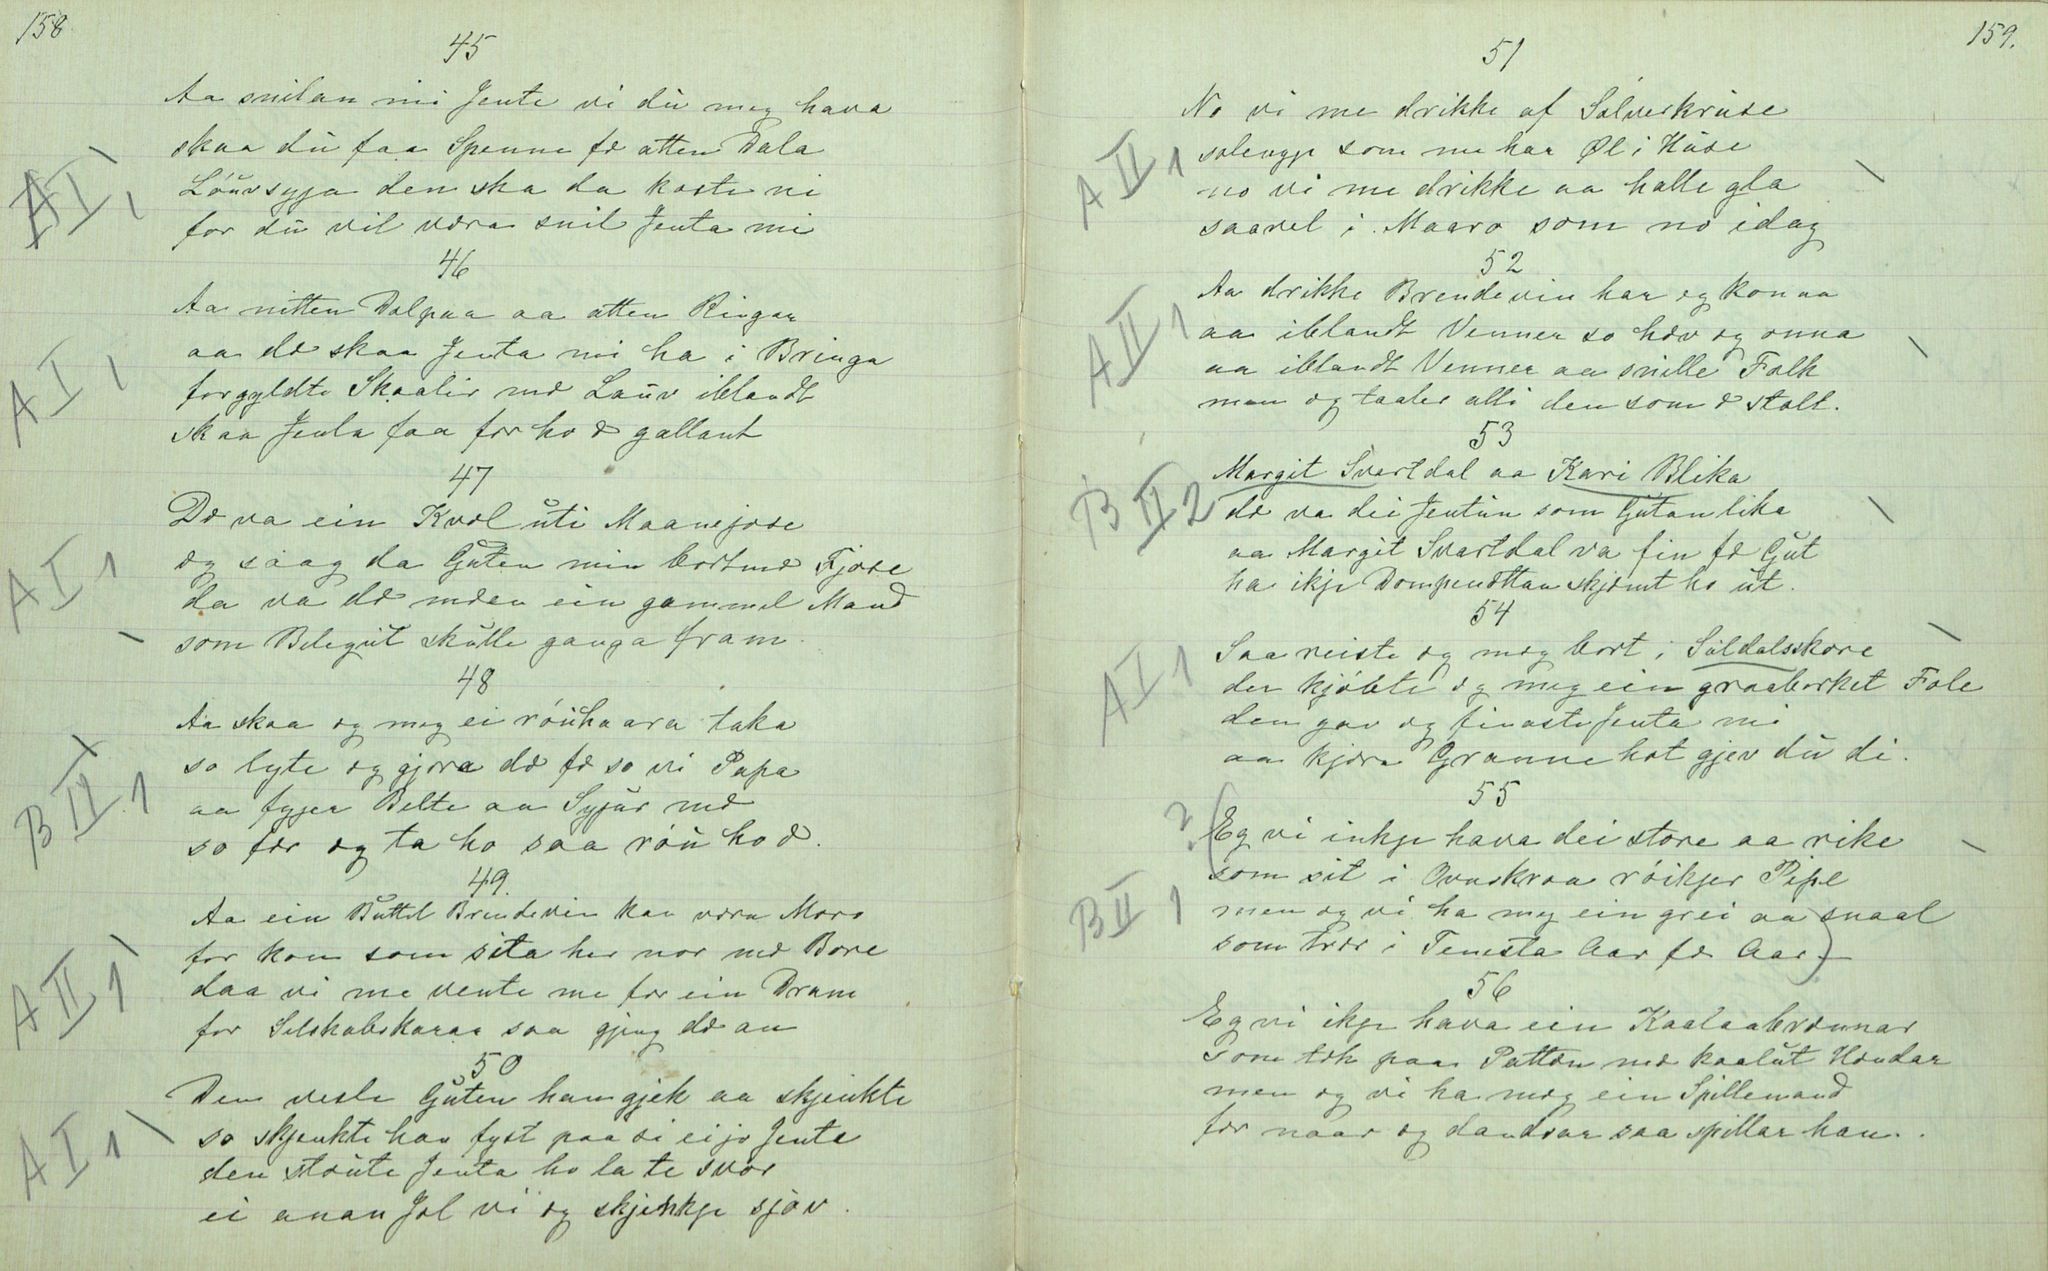 158.
45
Aa snilan mi Jente vi du meg hava
skaa du faa Spenne fæ atten Dala
Löuvsygja den ska da koste ni
for du vil være snil Jenta mi
A I 1
46
Aa nitten Dalpaa aa atten Ringar
aa dæ skaa Jenta mi ha i Bringa
forgyldte Skaalir mæ Lauv iblandt
skaa Jenta faa for ho æ gallant
A I 1
47
Dæ va ein Kvæl uti Maanejose
eg saag da Guten min bortmæ Fjose
da va dæ mæen ein gammel Mand
som Belegut skulle ganga fram.
A I 1
48
Aa skaa eg meg ei röuhaara taka
so lyte eg gjera dæ fæ so vi Papa
aa fygjer Belte aa Sygjur mæ
so fær eg ta ho saa röu ho æ.
B II 1
49.
Aa ein Buttel Brendevin kan vera Moro
for kon som sita her nor mæ Bore
daa vi me vente me for ein Dram
for Selskabskarar saa gjeng dæ an
A II 1
50
Den vesle Guten han gjek aa skjenkte
so skjenkte han fyst paa si eijo Jente
den stoute Jenta ho la te svor
ei anan Jol vi eg skjenkje sjöv.
A I 1
159.
51
No vi me drikke af Sölverkruse
solengje som me har Øl i Huse
no vi me drikke aa halle gla
saavel i Maaro som no idag
A II 1
52
Aa drikke Brendevin har eg konaa
aa iblandt Venner so hæv eg onna
aa iblandt Venner aa snille Folk
men eg taaler alli den som æ stolt.
A II 1
53
Margit Svartdal aa Kari Blika
dæ va dei Jentun som Gutan lika
aa Margit Svartdal va fin fæ Gut
ha ikje Dompendttan skjæmt ho ut.
B II 2
54
Saa reiste eg meg bort i Süldalsskore
der kjöbte eg meg ein graaborket Fole
den gav eg finaste Jenta mi
aa kjære Granne hot gjev du di.
A I 1
55
Eg vi inkje hava dei store aa rike
som sit i Ovnskraa röikjer Pipe
men eg vi ha meg ein grei aa snaal
som trær i Tenesta Aar fæ Aar
2
B II 1
56
Eg vi ikje hava ein Kaalaabrænnar
som tek paa Patten mæ kaalut Hændar
men eg vi ha meg ein Spillemand
for naar eg dandsar saa spillar han.